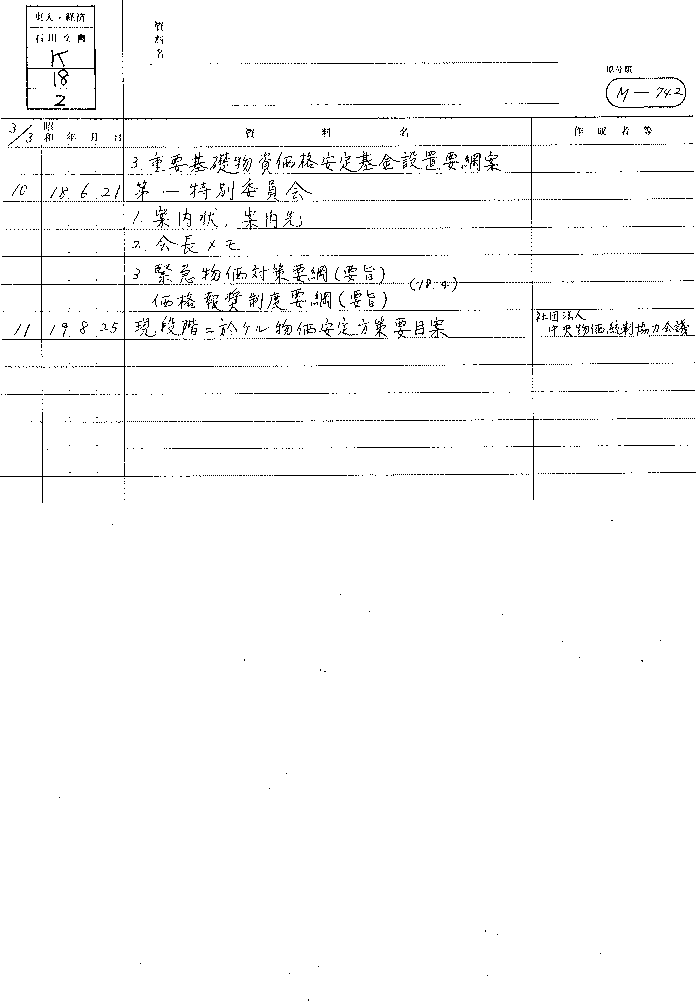 東大・経済
石川文書
K
18
2
資料名
原分類
M-742
3/3
昭和 年 月 日
資 料 名
作 成 者 等
3. 重要基礎物資価格安定基金設置要綱案
10 18 6 21 第一特別委員会
1. 案内状、案内先
2. 会長メモ
3 緊急物価対策要綱(要旨)
価格報奨制度要綱(要旨) (18.4)
11 19 8 25 現段階ニ於ケル物価安定方策要目案
社団法人
中央物価統制協力会議